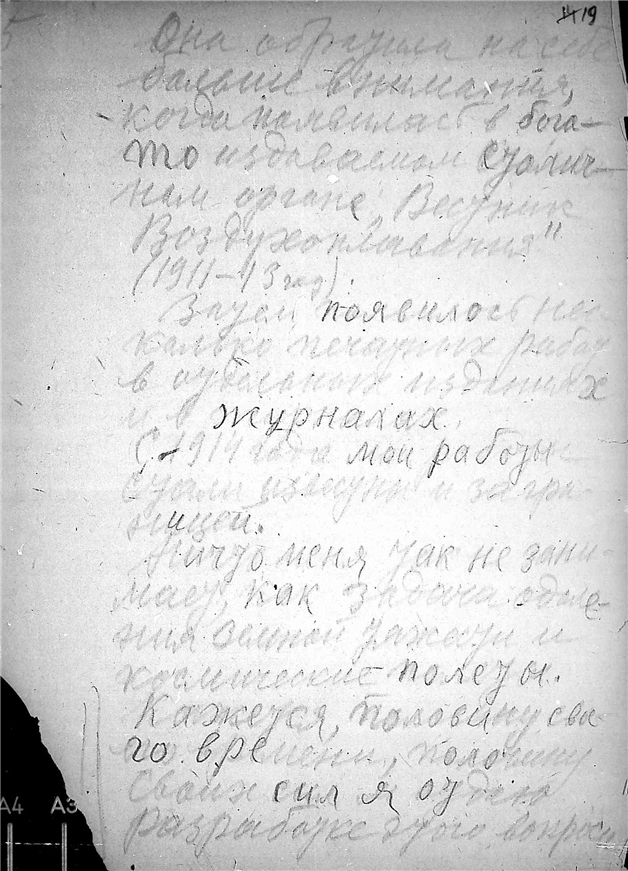 19
Она обратила на себе
больше внимания,
когда появилась в бога-
то издаваемом столич-
ном органе „Вестник
Воздухоплавания"
(1911–13 год).
Затем появилось нес-
колько печатных работ
в отдельных изданиях
и в журналах.
С 1914 года мои работы
стали известны и загра-
ницей.
Ничто меня так не зани-
мает, как задача одоле-
ния земной тяжести и
космические полеты.
Кажется, половину сво-
го времени, половину
своих сил я отдаю
разработке этого вопроса
A4 A3